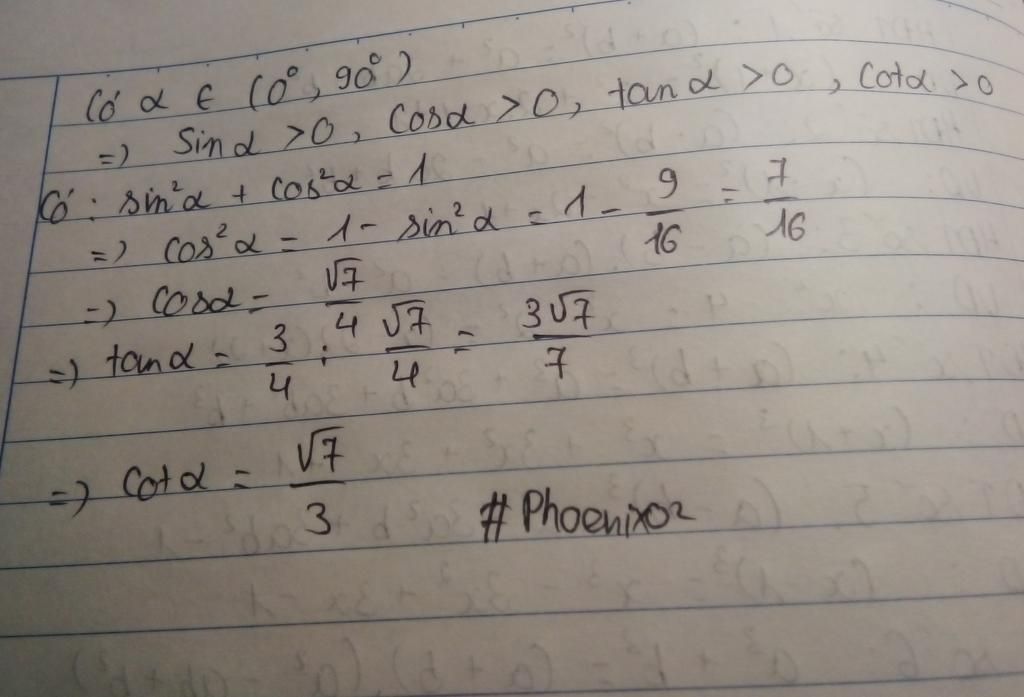 Có α ∈ (0°, 90°)
=) Sinα >0, Cosα >0, tanα >0, Cotα >0
Có: sin²α + cos²α = 1
=) cos²α = 1 - sin²α = 1 - 9/16 = 7/16
=) Cosα = √7/4
=) tanα = 3/4 : √7/4 = 3√7/7
=) Cotα = √7/3 #Phoenix02